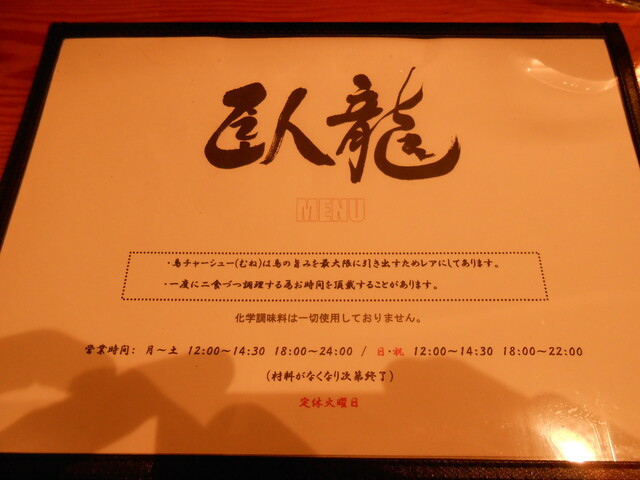 臥龍
MENU
・鳥チャーシュー(むね)は鳥の旨みを最大限に引き出すためレアにしてあります。
・一度に二食づつ調理する為お時間を頂戴することがあります。
化学調味料は一切使用しておりません。
営業時間: 月～土 12:00～14:30 18:00～24:00 / 日・祝 12:00～14:30 18:00～22:00
(材料がなくなり次第終了)
定休火曜日